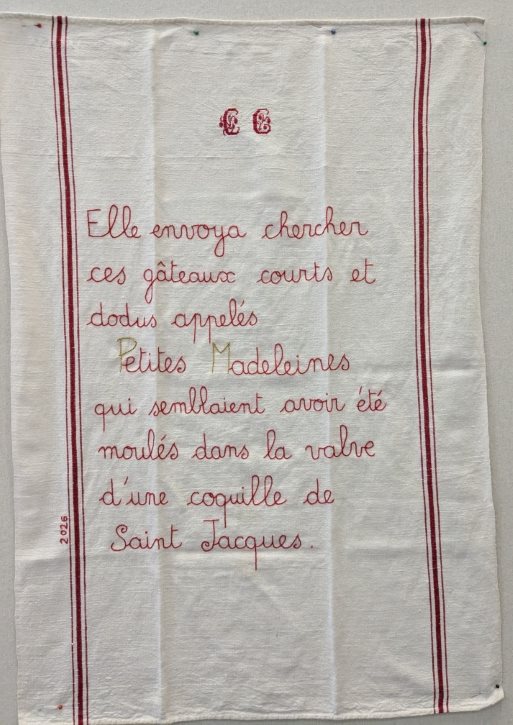 C C
Elle envoya chercher
ces gâteaux courts et
dodus appelés
Petites Madeleines
qui semblaient avoir été
moulés dans la valve
d'une coquille de
Saint Jacques.
2026